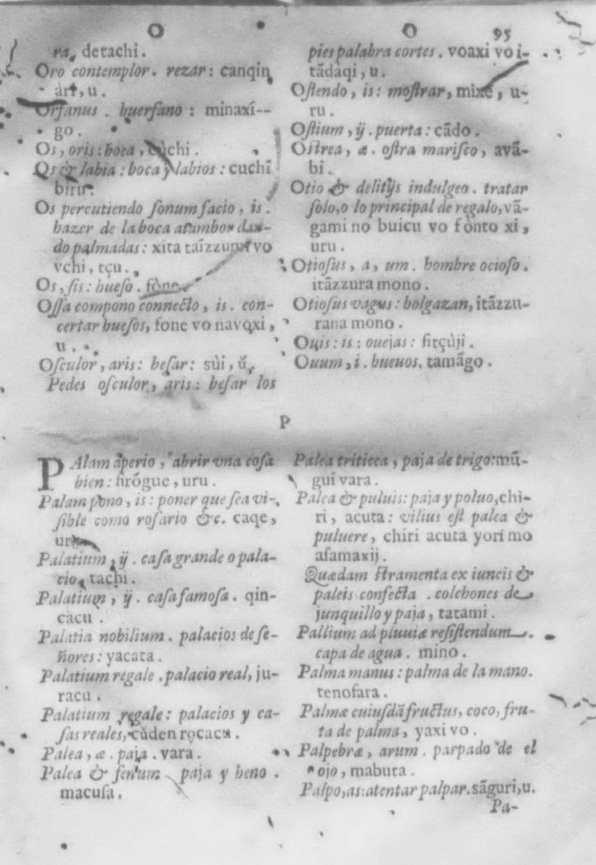 O O 95
ra, detachi.
Oro contemplor. rezar: canqin
ari, u.
Orfanus. huerfano: minaxi--
go.
Os, oris: boca, cuchi.
Os & labia: boca y labios: cuchi
biru.
Os percutiendo ſonum facio, is.
hazer de la boca atambor dan-
do palmadas: xita taĩzzumi vo
vchi, tçu.
Os, ſis: hueſo. fone.
Oſſa compono connecto, is. con-
certar hueſos, fone vo navoxi,
u.
Oſculor, aris: beſar: sùi, ŭ.
Pedes oſculor, aris: beſar los
pies palabra cortes. voaxi vo i-
tãdaqi, u.
Oſtendo, is: moſtrar, mixe, u-
ru.
Oſtium, ÿ. puerta: cãdo.
Oſtrea, æ. oſtra mariſco, avã-
bi.
Otio & delitÿs indulgeo. tratar
ſolo, o lo principal de regalo, vã-
gami no buicu vo fonto xi,
uru.
Otioſus, a, um. hombre ocioſo.
itãzzura mono.
Otioſus vagus: holgazan, itãzzu-
rana mono.
Ouis: is: ouejas: fitçùji.
Ouum, i. hueuos. tamãgo.
P
PAlam aperio, abrir vna coſa
bien: firógue, uru.
Palam pono, is: poner que ſea vi-
ſible como roſario &c. caqe,
uru.
Palatium, ÿ. caſa grande o pala-
cio, tachi.
Palatium, ÿ. caſa famoſa. qin-
cacu.
Palatia nobilium. palacios de ſe-
ñores: yacata.
Palatium regale. palacio real, ju-
racu.
Palatium regale: palacios y ca-
ſas reales, cùden rocacu.
Palea, æ. paja. vara.
Palea & fenum paja y heno.
macuſa.
Palea triticea, paja de trigo: mũ-
gui vara.
Palea & puluis: paja y poluo, chi-
ri, acuta: vilius eſt palea &
puluere, chiri acuta yori mo
aſamaxij.
Quædam ſtramenta ex iuncis &
paleis confecta. colchones de
junquillo y paja, tatami.
Pallium ad pluuiæ reſiſtendum.
capa de agua. mino.
Palma manus: palma de la mano.
tenoſara.
Palmæ cuiuſdã fructus, coco, fru-
ta de palma, yaxi vo.
Palpebræ, arum. parpado de el
ojo, mabuta.
Palpo, as: atentar palpar. sãguri, u.
Pa-